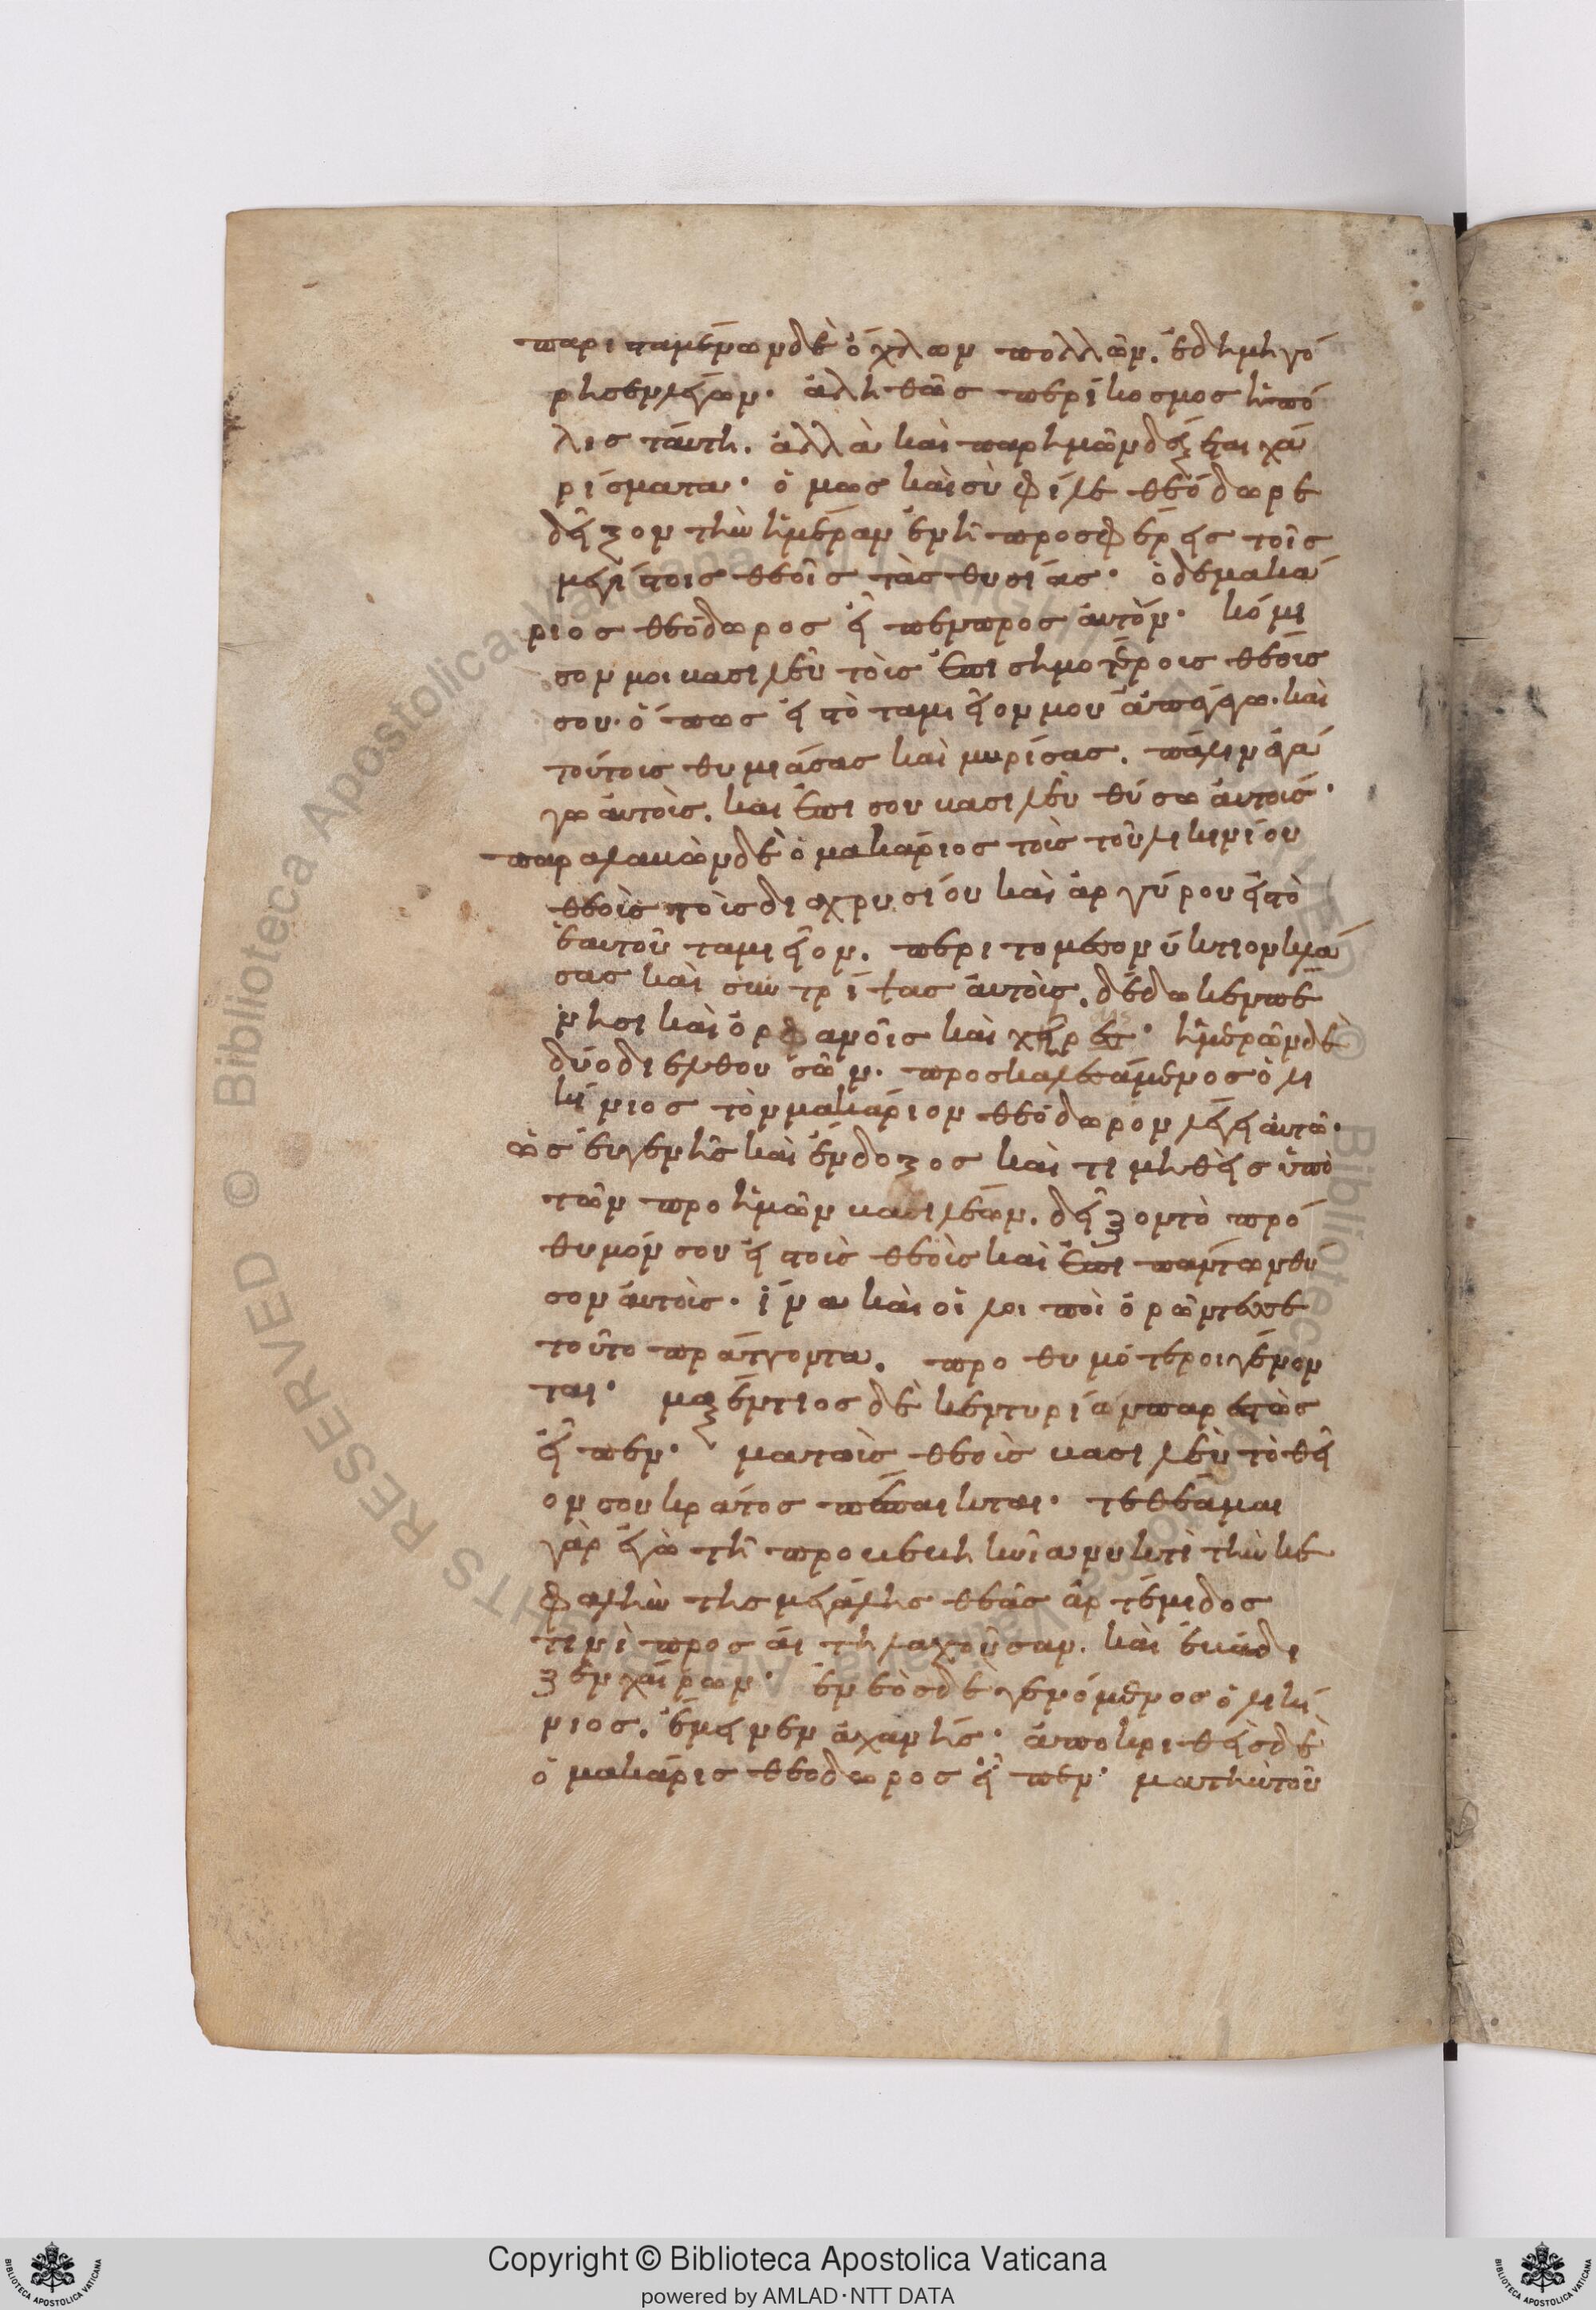 παριϊσταμένων δὲ ὄχλων πολλῶν. ἐδημηγό
ρησεν λέγων· ἀληθῶς περίκοσμος ἡ πό
λισ τάυτη. ἀλλὰ καὶ παρημῶν δέξεται χα
ρίσματα· ὅμως καὶ σὺ φίλε θεόδωρε
δεῖξον τὴν ἡμέραν ἐν ἧ προσφέρεις τοῖς
μεγίστοις θεοῖς τὰς θυσίας· ὁ δε μακά
ριος θεόδωρος εἶπεν προς ἀυτόν· κόμι
σον μοι βασιλεῦ τοὶσ ἐπισημοτέροις θεοῖς
σου· ὅπως εἰς τὸ ταμιεῖον μου ἀπαγάγω. καὶ
τούτοις θυμιάσας καὶ μυρίσας. πάλιν ἀγά
γω ἀυτοὶς. καὶ ἐπι σου βασιλεῦ θύσω ἀυτοις·
παραλαβὼν δὲ ὁ μακάριος τοὶς τοῦ λικινίου
θεοὶς τοὶς δια χρυσίου καὶ ἀργύρου εἰς τὸ
ἑαυτοῦ ταμιεῖον. περι το μέσονύκτιον κλά
σας καὶ συντρίψας ἀυτοὶς. δέδωκεν πέ
νησι καὶ ὀρφανοῖς καὶ χήρες· ἡμερῶν δὲ
δύο διελθουσῶν. προσκαλεσάμενος ὁ λι
κίνιος τὸν μακάριον θεόδωρον λέγει ἀυτῶ·
ὡς ἐυγενὴς καὶ ἔνδοξος καὶ τιμηθεὶς ὑπὸ
τῶν προ ἡμῶν βασιλέων. δεῖξον τὸ πρό
θυμόν σου εἰς τοὶς θεοὶς καὶ ἐπι πάντων θύ
σον ἀυτοὶς. ἵνα καὶ οἱ λοιποὶ ὁρῶντές σε
τοῦτο πράττοντα. προθυμότεροι γένον
ται· μαξέντιος δὲ κεντυρίων παρεστὼς
εἶπεν· μα τοὶς θεοὶς βασιλεῦ τὸ θεῖ
ον σου κράτος πέπαικται· τεθέαμαι
γὰρ ἐγὼ τῆ προβεβηκυῖα νυκτὶ τὴν κε
φαλὴν της μεγάλης θεᾶς ἀρτέμιδος
τινὶ προσαιτη λαχοῦσαν. καὶ ἐβάδι
ζεν χαίρων· ἐνεὸς δὲ γενόμενος ὁ λικί
νιος. ἔμεινεν ἀχανής· ἀποκριθεὶς δὲ
ὁ μακάρις θεοδωρος εἶπεν· μα τὴν τοῦ
Copyright © Biblioteca Apostolica Vaticana
powered by AMLAD·NTT DATA